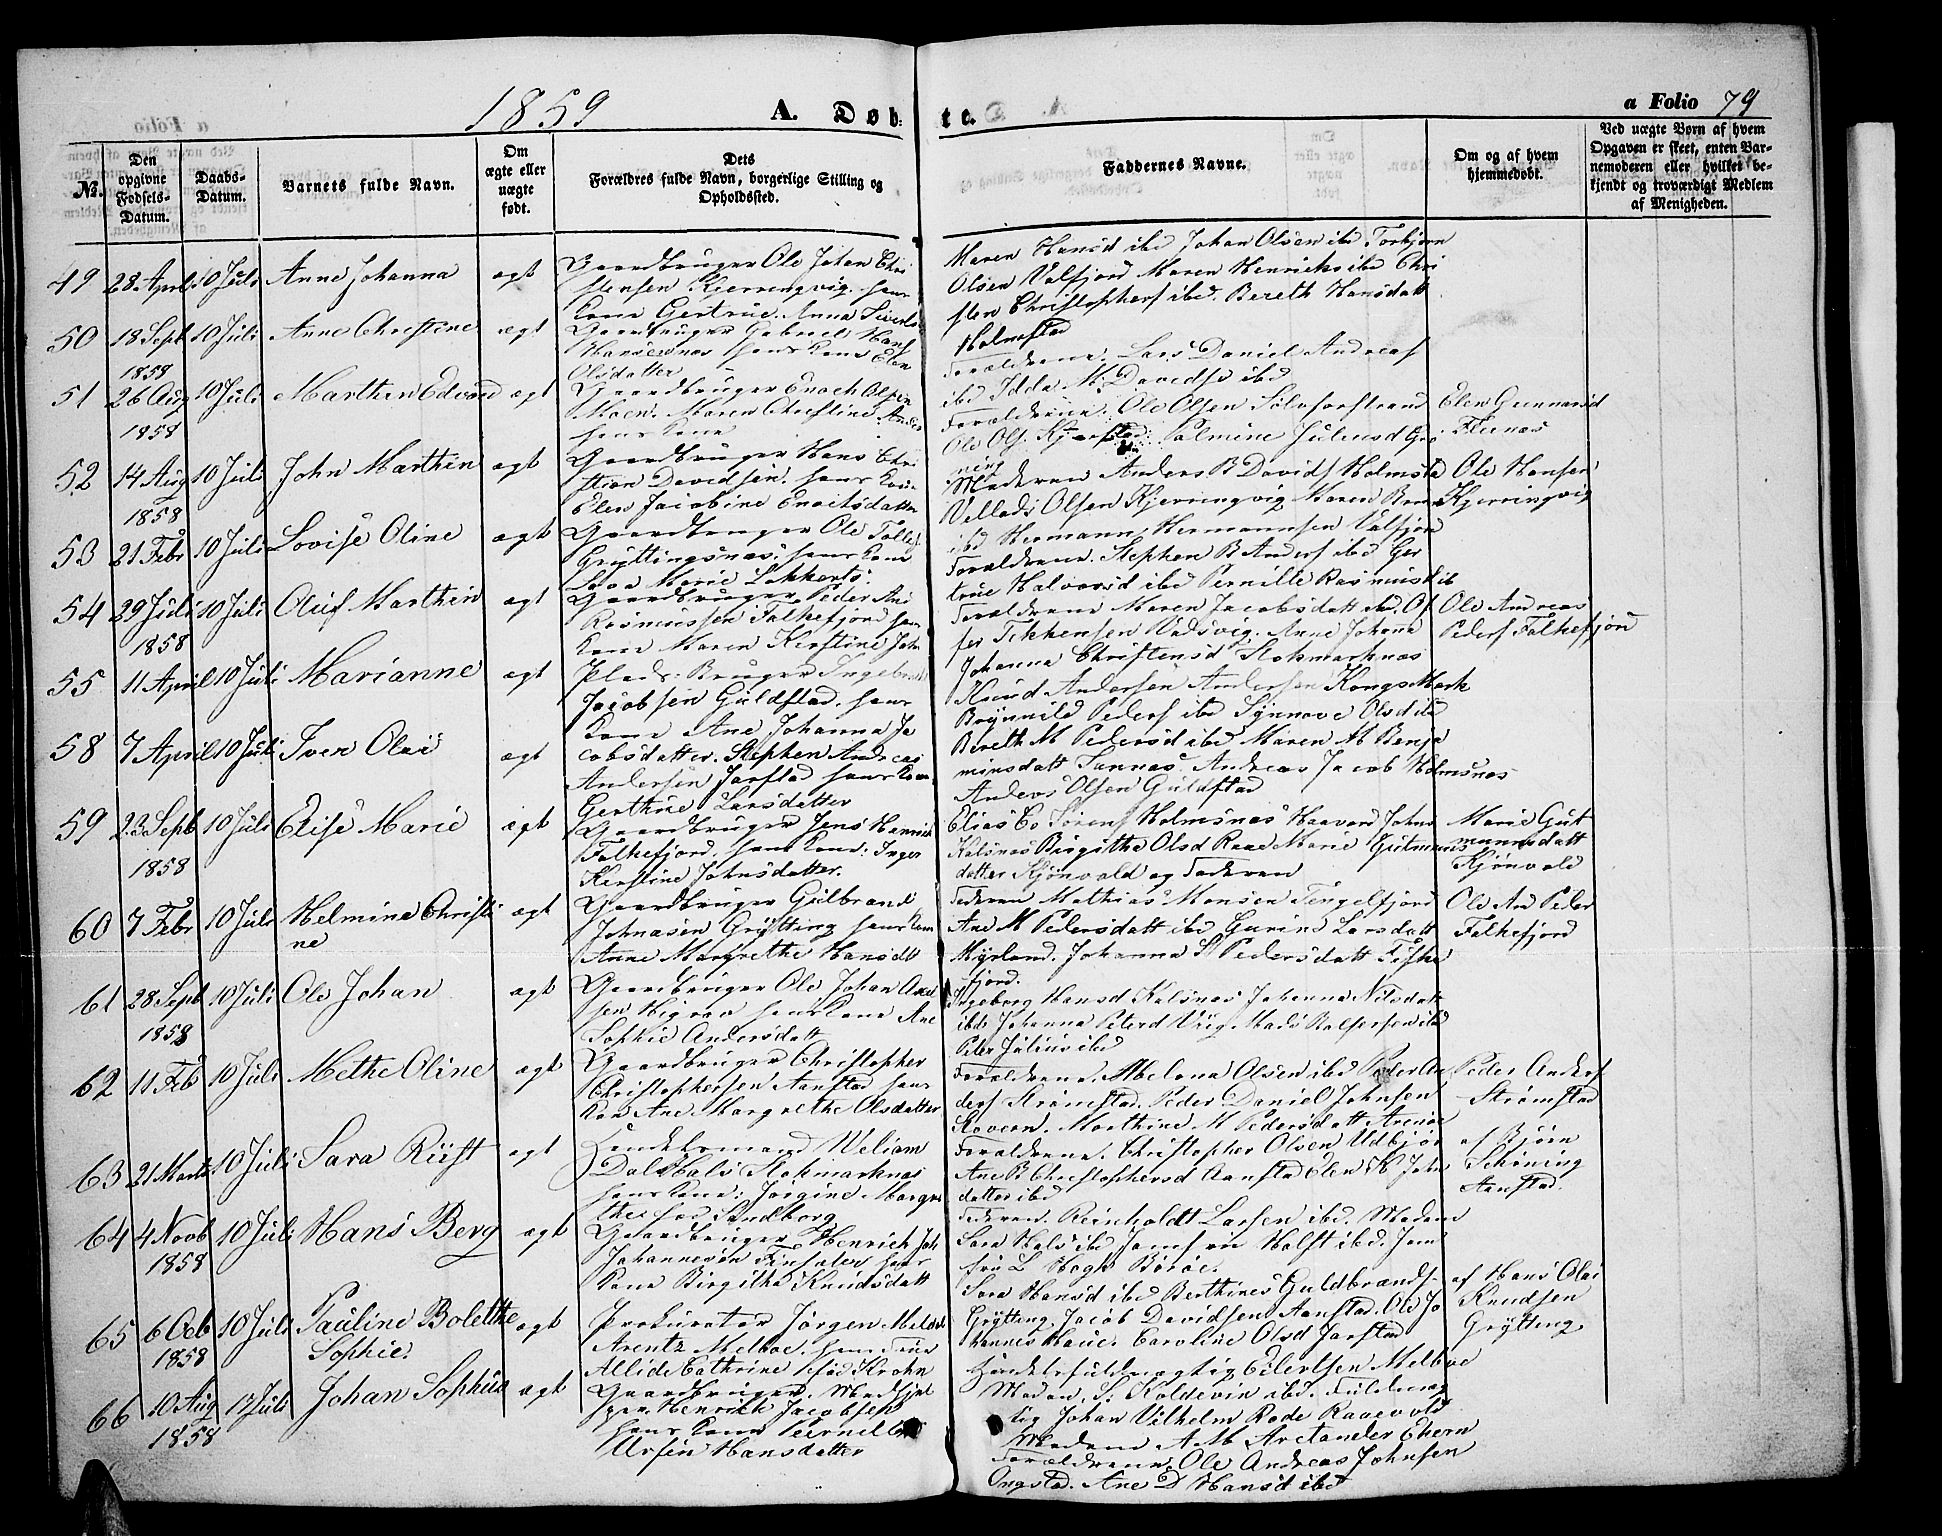 1859
A. Døbte.
a Folio 79
№.
Den opgivne Fødsels-Datum.
Daabs-Datum.
Barnets fulde Navn.
Om ægte eller uægte født.
Dets Forældres fulde Navn, borgerlige Stilling og Opholdssted.
Faddernes Navne.
Om og af hvem hjemmedøbt.
Ved uægte Børn af hvem Opgaven er skeet, enten Barnemoderen eller hvilket bekjendt og troværdigt Medlem af Menigheden.
49 28 April 10 Juli Anne Johanna ægt
Gaardbruger Ole Johan Chri
stensen Kjerringvig. hans
Kone Gertrue Anna Siverts
Maren Hansd ibd Johan Olsen ibd Torbjørn
Olsen Valfjord Maren Henriks ibd Chri
sten Christophers ibd. Bereth Hansdatt
Holmstad
50 18 Sept 10 Juli Anne Christine ægt
1858
Gaardbruger Gabriel Hans
Hansesnæs hans Kone Elen
Olsdatter
Forældrene. Lars Daniel Andreas
ibd Idda M. Davidsd ibd
51 26 Aug 10 Juli Marthin Edvard ægt
1858
Gaardbruger Enoch Olsen
Moen. Maren Christine Anders
hans Kone
Forældrene. Ole Olsen Silvforstrand
Ole Ols. Kjørstad. Palmine Juliusd Grø
ning
Elen Gunnarsd
Flesnæs
52 14 Aug 10 Juli John Marthin ægt
1858
Gaardbruger Hans Chri
stian Davidsen. hans Kone
Elen Jacobine Enoksdatter
Moderen Anders B Davids Holmsta
Vellads Olsen Kjerringvig Maren
ibd Hermann Hermannsen Valfjord
Ole Hansen
Kjerringvig
53 21 Febr 10 Juli Lovise Oline ægt
Gaardbruger Ole Tolles
Gryttingsnæs, hans Kone
Marie Lekkerts.
Forældrene. Stephen B Anders ibd Ger
true Halvorsd ibd Pernille Rasmusd ib
54 29 Juli 10 Juli Oluf Marthin ægt
1858
Gaardbruger Peder And
Rasmussen Falkefjord hans
Kone Maren Kirstine Joh
Forældrene Maren Jacobsdatt ibd. Of
fer Tekkensen Vadsvig. Anne Johanna
Johanna Christensd Stokmarknæs
Ole Andreas
Peders Falkefjord
55 11 April 10 Juli Marianne ægt
Plads-Bruger Ingebret
Jacobsen Guldstad. hans
Kone Ane Johanna Ja
cobsdatter.
Knud Andersen Andersen Kongsmark
Brynnild Peders ibd Synnove Olsd ibd
58 7 April 10 Juli Iver Olai ægt
Stephen Andreas
Andersen Jarstad hans Kone
Gerthrue Larsdatter
Bereth M Pedersd ibd Maren M Benja
minsdatt Sannæs Andreas Jacob Holmsnæs
Anders Olsen Guldstad
59 23 Sept 10 Juli Elise Marie ægt
1858
Gaardbruger Jens Henrich
Falkefjord. hans Kone: Inger
Kirstine Johnsdatter.
Elias Co Sørens Holmsnæs Haavard Johns
Kalsnæs Brigithe Olsd Raae Marie Gutmunds
datter Kjønvald og Faderen
Marie Gut
mundsdatt
Kjønvald
60 7 Febr 10 Juli Helmine Christi ægt
ne
Gaardbruger Gulbrand
Johnasen Grytting hans Kone
Anne Margrethe Hansdt
Faderen Mathias Monsen Tengelfjord
Ane M Pedersdatt ibd Gurine Larsdatt
Myrland. Johanna S Pedersdatt Fiske
fjord.
Ole An Peder
Falkefjord
61 28 Sept 10 Juli Ole Johan ægt
1858
Gaardbruger Ole Johan And
sen Higrav hans Kone Ane
Sophie Andersdatt
Ingeborg Hansd Kalsnæs Johanna Nilsdatt
ibd Johanna Petersd Viig. Mads Rolfersen ibd
Peter Julius ibd
62 11 Feb 10 Juli Methe Oline ægt
Gaardbruger Christopher
Christophersen Aanstad hans
Kone Ane Margrethe Olsdatter
Forældrene. Abelona Olsen ibd Peder An
ders Strømstad. Peder Daniel Johnsen
Skoveren. Marthine M Pedersdatt Arenæs
Peder Anders
Strømstad
63 21 Marts 10 Juli Sara Riist ægt
Handelsmand Veliam
Dal Hals Stokmarknæs
hans Kone: Jørgine Margre
the fød Sandborg
Forældrene. Christopher Olsen Udbjør
Ane B Christophersd Aanstad Elen K John
datter ibd
af Bjørn
Schøning
Aanstad.
64 4 Novb 10 Juli Hans Berg ægt
1858
Gaardbruger Henrich Joh
Johannesen Finsæter hans
Kone Birgithe Knudsdatt
Faderen. Reinholdt Larsen ibd. Madam
Sara Hals ibd Jomfru Halst ibd. Jom
fru L Hagh Børøe.
65 6 Octb 10 Juli Pauline Bolethe ægt
1858
Sophie.
Prokurator Jørgen Meldal
Arentz Melboe. hans Frue
Allide Cathrine fød Krohn
Sara Hansd ibd Berthines Guldbrands
Grytting. Jacob Davidsen Aanstad. Ole Jo
hannes Haue. Caroline Olsd Jarstad
af Hans Olai
Knudsen
Grytting.
66 10 Aug 17 Juli Johan Sophus ægt
1858
Gaardbruger. Medhjæl
per. Henrich Jacobsen
hans Kone Pernille
Ursin Hansdatter
Handelsfuldmægtig Eilertsen Melboe
Madam S. Koldevin ibd. Fuldmæg
tig Johan Vilhelm Rode Raaevold
Madam A M Arctander Ehern
Forældrene. Ole Andreas Johnsen
Ongstad. Ane D Hansd ibd